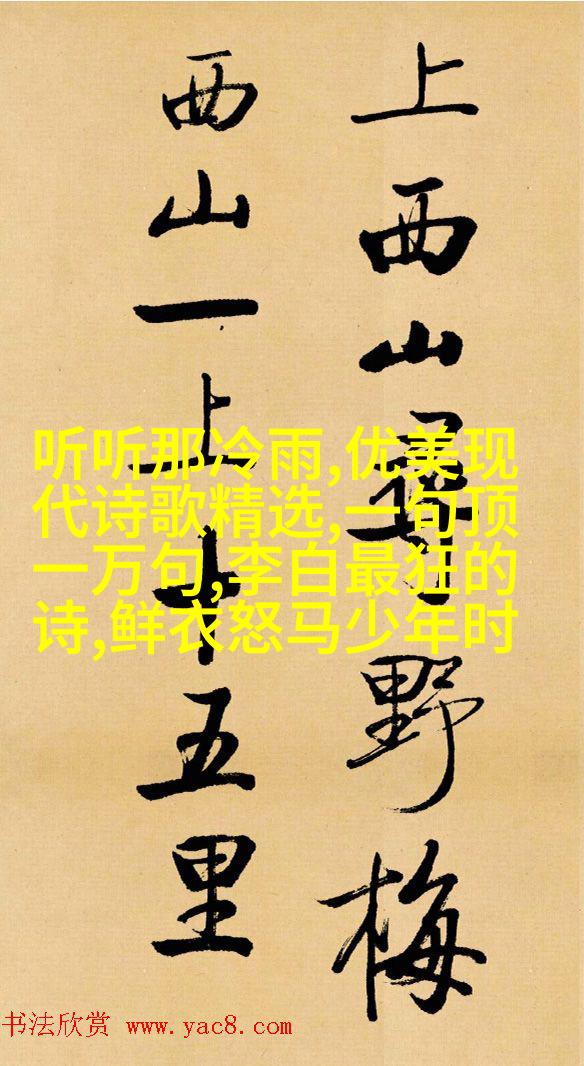 上西山尋野梅
西山一上十五里
听听那冷雨,优美现
代诗歌精选,一句顶
一万句,李白最狂的
诗,鲜衣怒马少年时
书法欣赏 www.yac8.com